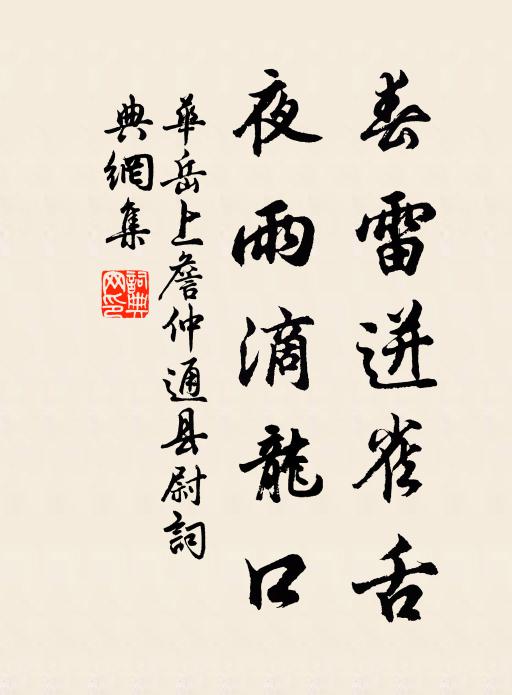 春雷迸雀舌
夜雨滴龍口
華岳上詹仲通县尉詞
典網集
詞典
网印